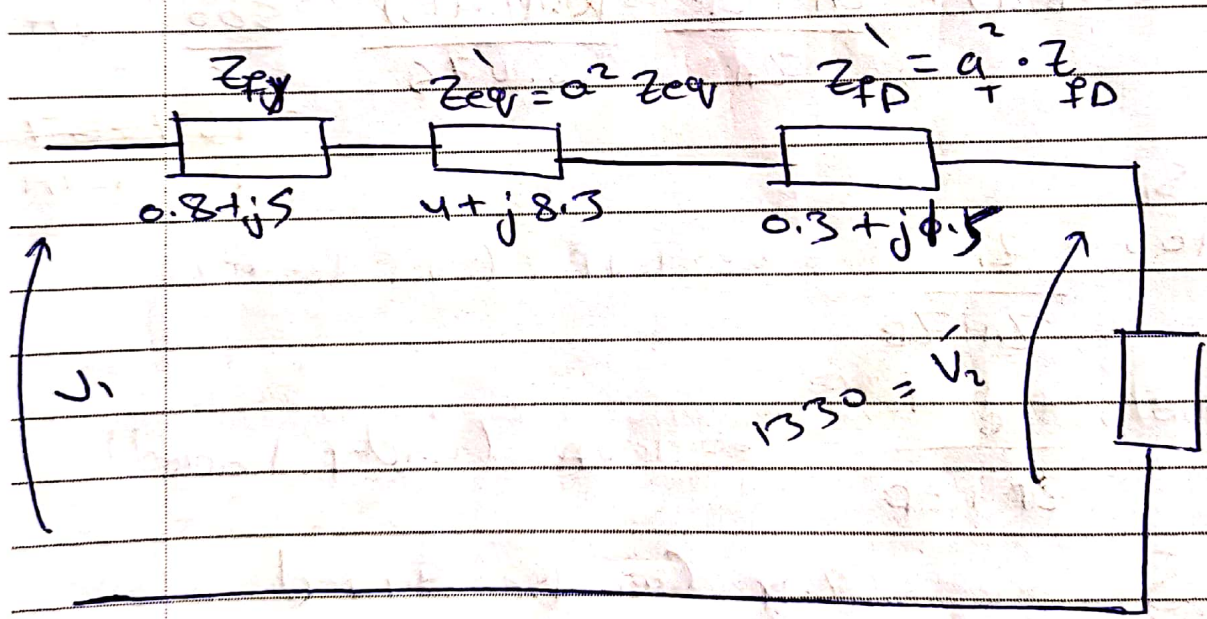 Zfy
Z̀eq = a² Zeq
Z̀fD = a²T · ZfD
0.8+j5
4+j 8.3
V1
1330 = V́2